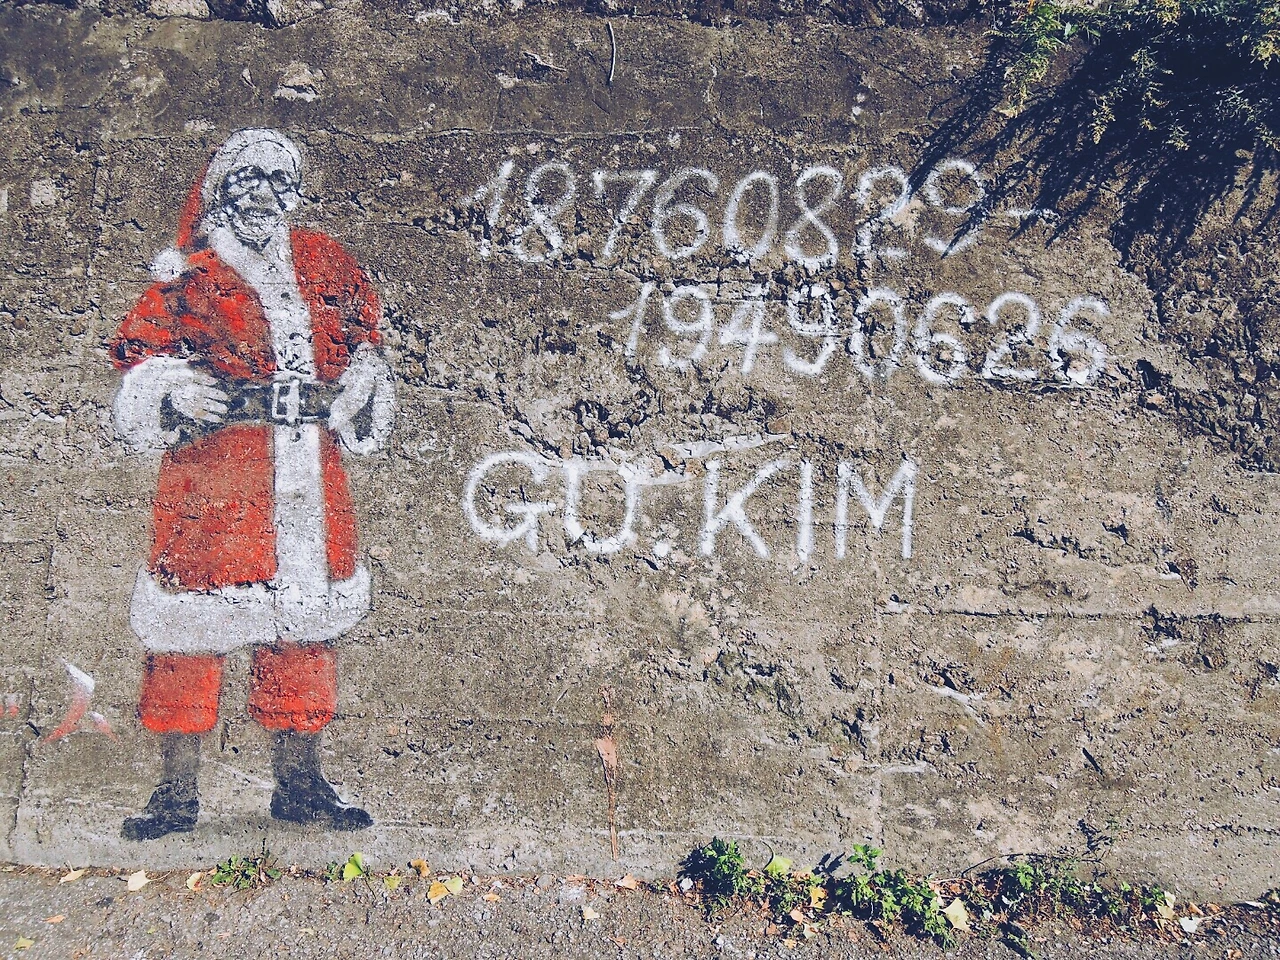 18760829-
19490626
GU.KIM